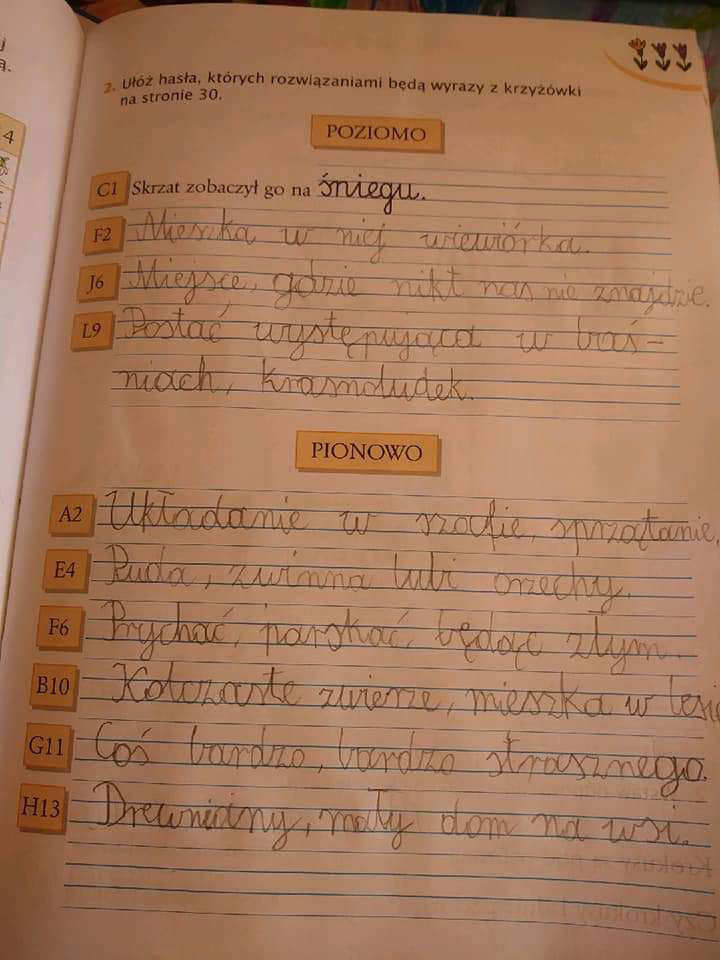 2. Ułóż hasła, których rozwiązaniami będą wyrazy z krzyżówki
na stronie 30.
POZIOMO
C1 Skrzat zobaczył go na śniegu.
F2 Mieszka w niej wiewiórka.
J6 Miejsce, gdzie nikt nas nie znajdzie.
L9 Postać występująca w baś-
niach, krasnoludek.
PIONOWO
A2 Układanie w szafie, sprzątanie.
E4 Ruda, zwinna lubi orzechy.
F6 Prychać, parskać, będąc złym.
B10 Kolczaste zwierze, mieszka w lesie
G11 Coś bardzo, bardzo strasznego.
H13 Drewniany, mały dom na wsi.
4